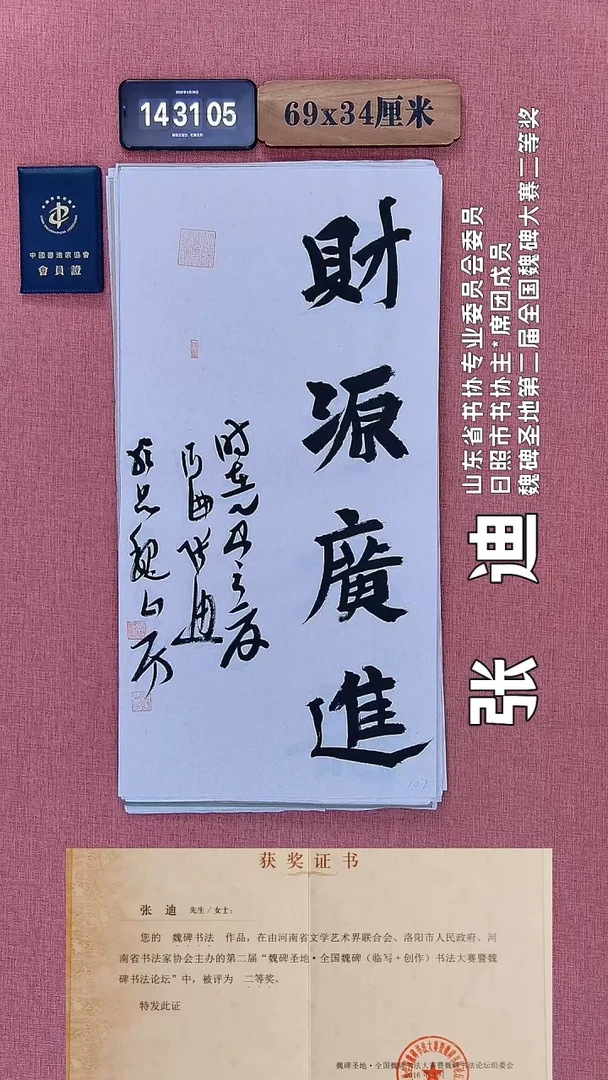 14 31 05
69x34厘米
中国书法家协会
會員證
財源廣進
时在
张迪
魏
107
山东省书协专业委员会委员
日照市书协主*席团成员
魏碑圣地第二届全国魏碑大赛二等奖
张 迪
获奖证书
张 迪 先生/女士:
您的 魏碑书法 作品，在由河南省文学艺术界联合会、洛阳市人民政府、河
南省书法家协会主办的第二届“魏碑圣地·全国魏碑（临写+创作）书法大赛暨魏
碑书法论坛”中，被评为 二等奖。
特发此证
魏碑圣地·全国魏碑书法大赛暨魏碑书法论坛组委会